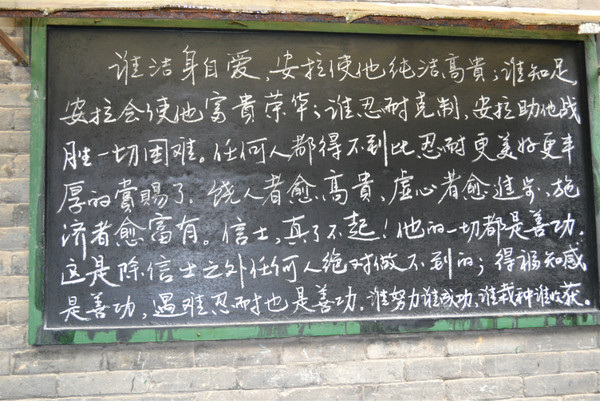 谁洁身自爱、安拉使他纯洁高貴；谁知足
安拉会使他富貴荣华；谁忍耐克制，安拉助他战
胜一切困难。任何人都得不到比忍耐更美好更丰
厚的賞賜了．饶人者愈高貴，虚心者愈進步，施
济者愈富有。信士，真了不起！他的一切都是善功．
这是除信士之外任何人绝对做不到的；得福知感
是善功，遇难忍耐也是善功．谁努力谁成功．谁栽种谁收获。